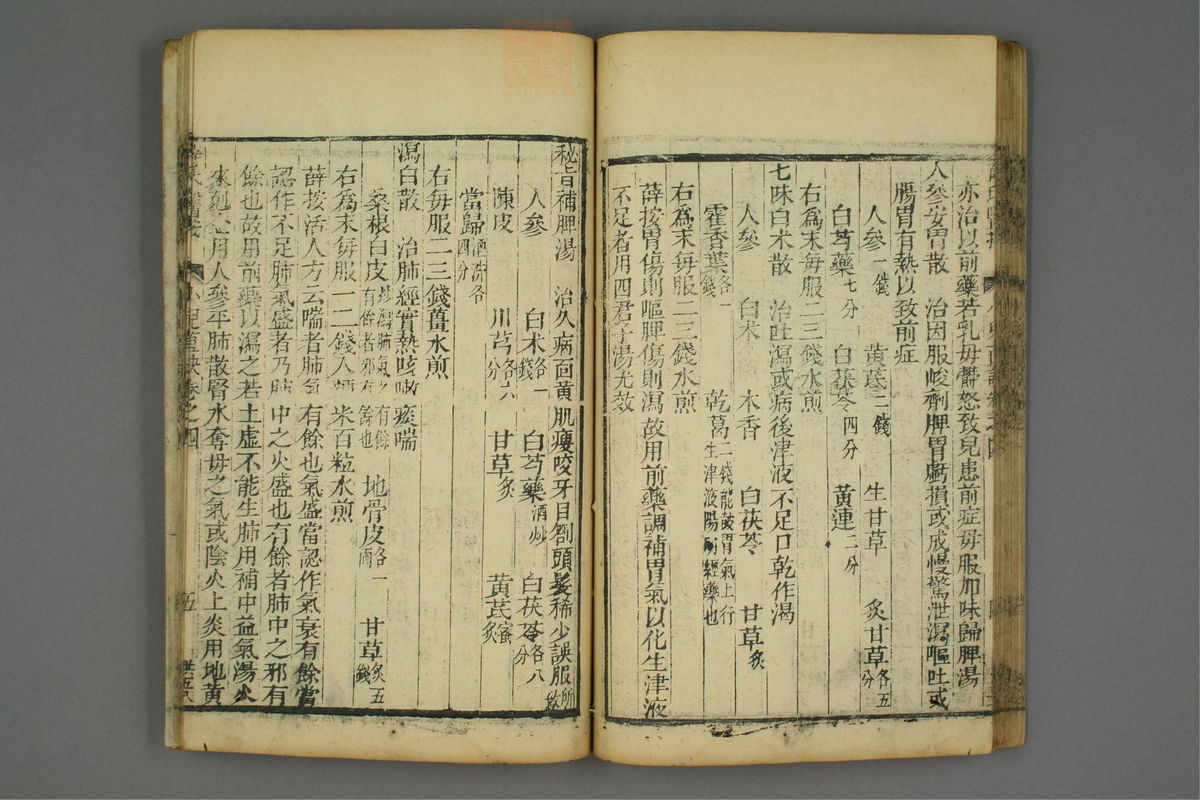 亦治以前藥若乳母鬱怒致兒患前症母服加味歸脾湯
人參安胃散　治因服峻劑脾胃虧損或成慢驚泄瀉嘔吐或
腸胃有熱以致前症
人參一錢　黃芪二錢　生甘草　炙甘草各五分
白芍藥七分　白茯苓四分　黃連二分
右爲末每服二三錢水煎
七味白术散　治吐瀉或病後津液不足口乾作渴
人參　白术　木香　白茯苓　甘草炙
藿香葉各一錢　乾葛二錢能鼓胃氣上行生津液陽明經藥也
右爲末每服二三錢水煎
薛按胃傷則嘔脾傷則瀉故用前藥調補胃氣以化生津液
不足者用四君子湯尤效
秘旨補脾湯　治久病面黃肌瘦咬牙目劄頭髮稀少誤服所致
人參　白术各一錢　白芍藥酒炒　白茯苓各八分
陳皮　川芎各六分　甘草炙　黃芪蜜炙
當歸酒洗各四分
右每服二三錢薑水煎
瀉白散　治肺經實熱咳嗽痰喘
桑根白皮炒瀉肺氣之有餘者邪有有餘也　地骨皮各一兩　甘草炙五錢
右爲末每服一二錢入粳米百粒水煎
薛按活人方云喘者肺氣有餘也氣盛當認作氣衰有餘當
認作不足肺氣盛者乃肺中之火盛也有餘者肺中之邪有
餘也故用前藥以瀉之若土虛不能生肺用補中益氣湯火
來剋金用人參平肺散腎水奪母之氣或陰火上炎用地黃
小兒直訣卷之四
五